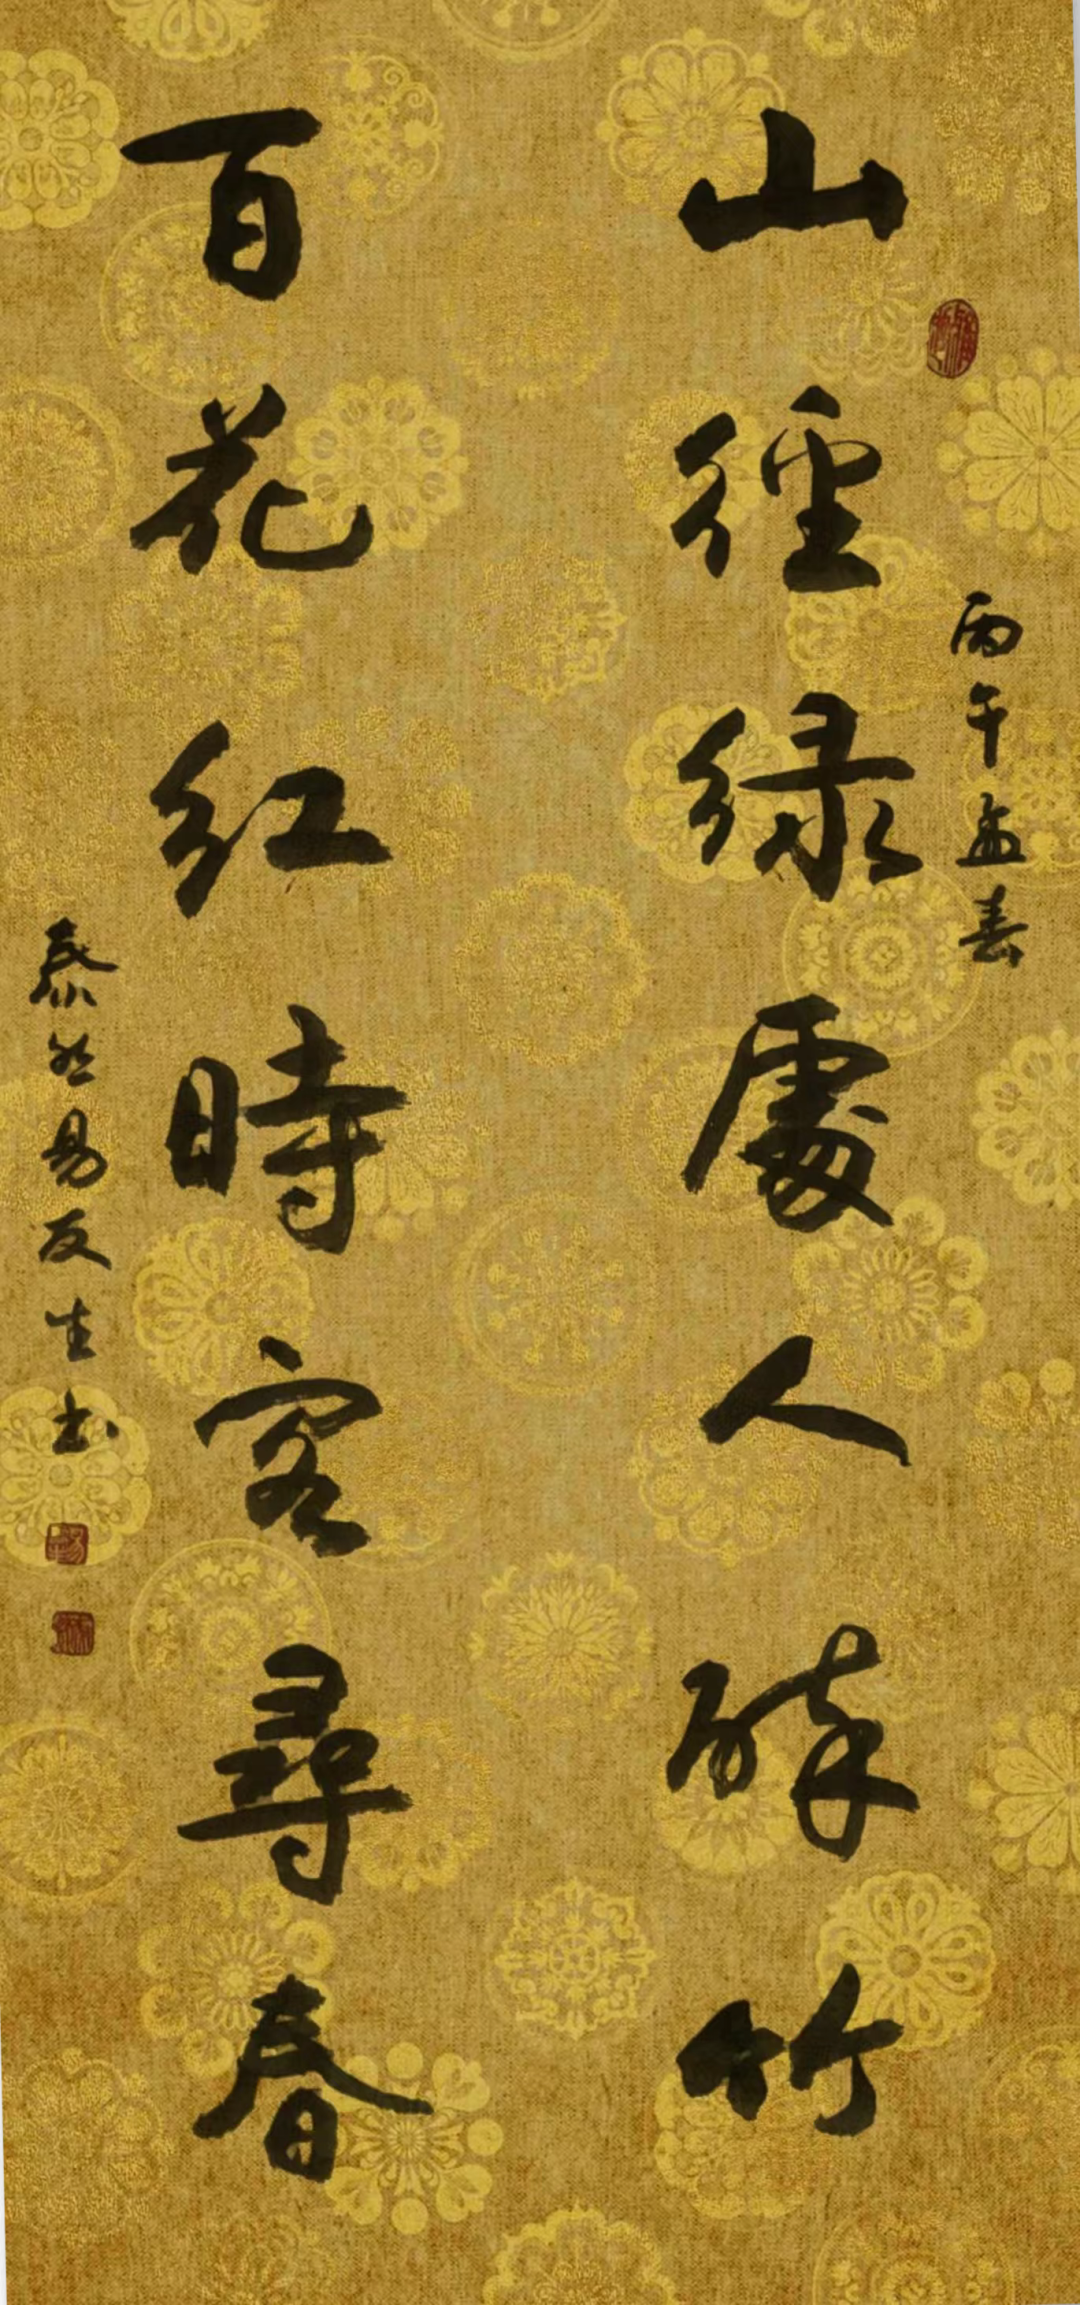 山徑绿處人醉竹
丙午孟春
百花红時客尋春
泰然易友生书